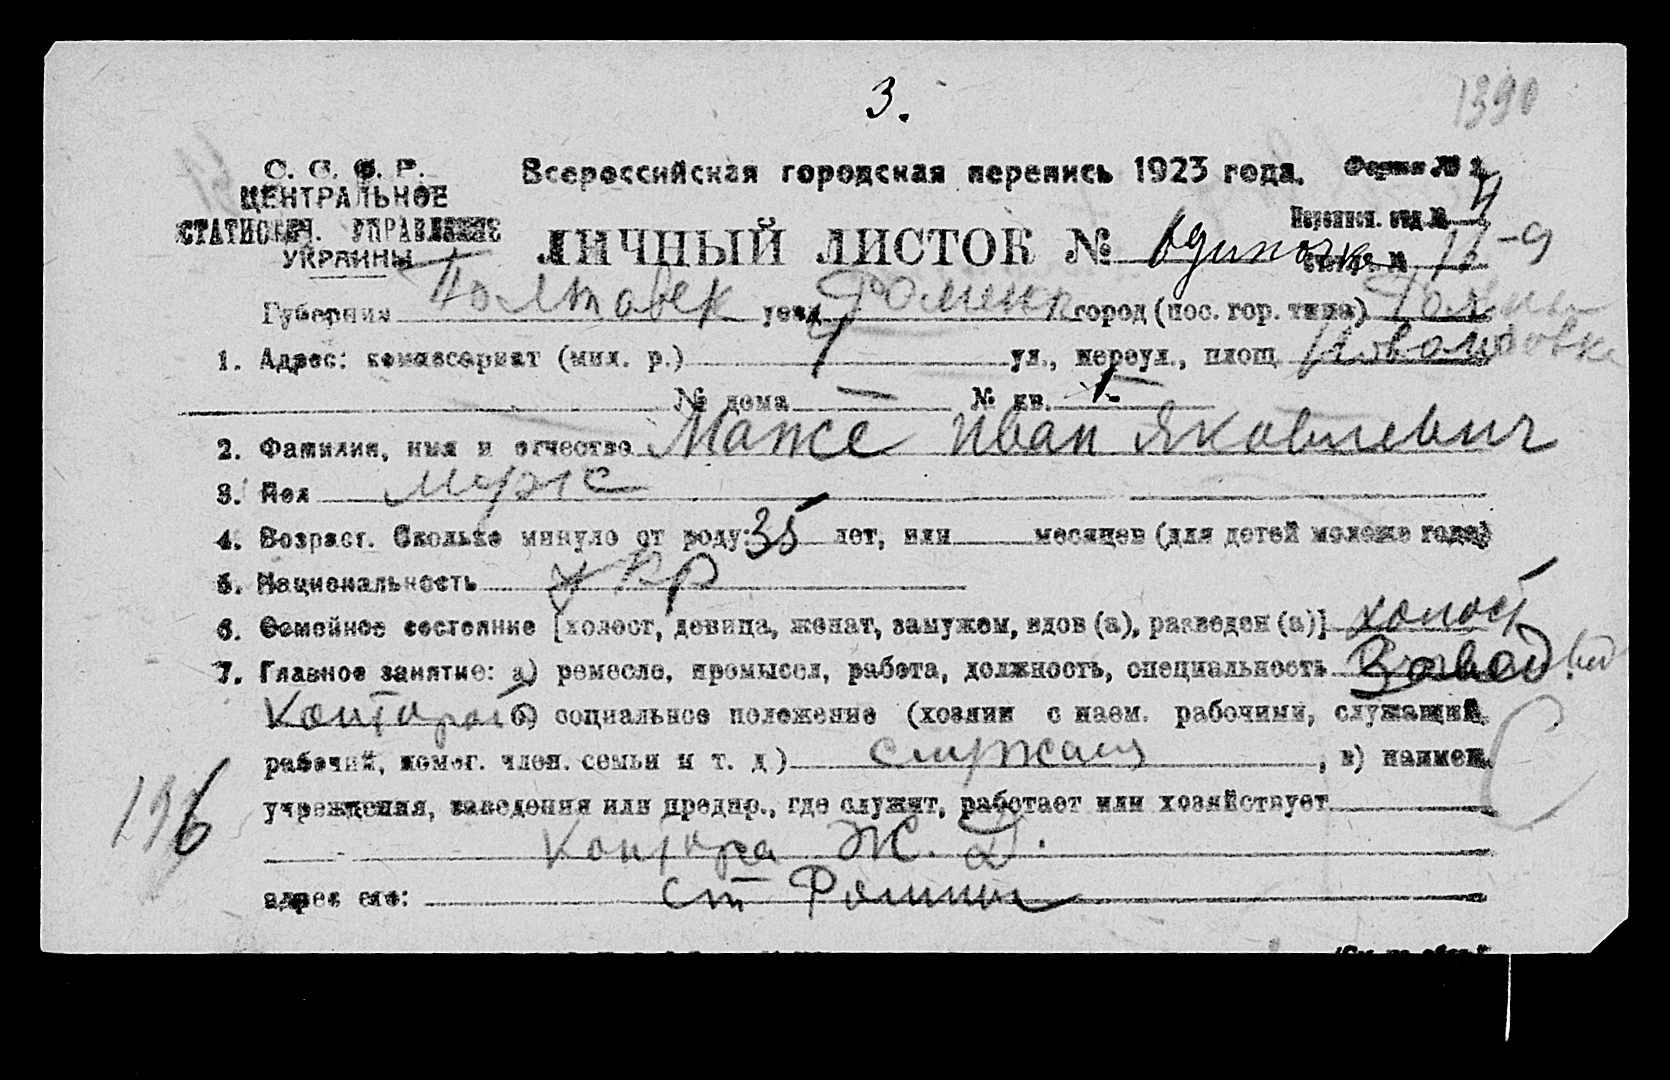 3.
1390
С. С. С. Р.
ЦЕНТРАЛЬНОЕ
СТАТИСТИЧ. УПРАВЛЕНИЕ
УКРАИНЫ
Всероссийская городская перепись 1923 года.
Форма № 1
Переписн. отд. №
ЛИЧНЫЙ ЛИСТОК № одиночка
Губерния Полтавск уезд Роменск город (пос. гор. типа) Ромны
1. Адрес: комиссариат (мил. р.) ул., переул., площ.
№ дома — № кв. 1
2. Фамилия, имя и отчество Маже Иван Яковлевич
3. Пол муж
4. Возраст. Сколько минуло от роду: 35 лет, или месяцев (для детей моложе года)
5. Национальность укр
6. Семейное состояние [холост, девица, женат, замужем, вдов (а), разведен (а)] холост
7. Главное занятие: а) ремесло, промысел, работа, должность, специальность Завед.
Конторой б) социальное положение (хозяин с наем. рабочими, служащий,
рабочий, помог. член. семьи и т. д) служащ , в) наимен.
учреждения, заведения или предпр., где служит, работает или хозяйствует
Контора Ж. Д.
адрес его: ст Ромны
196